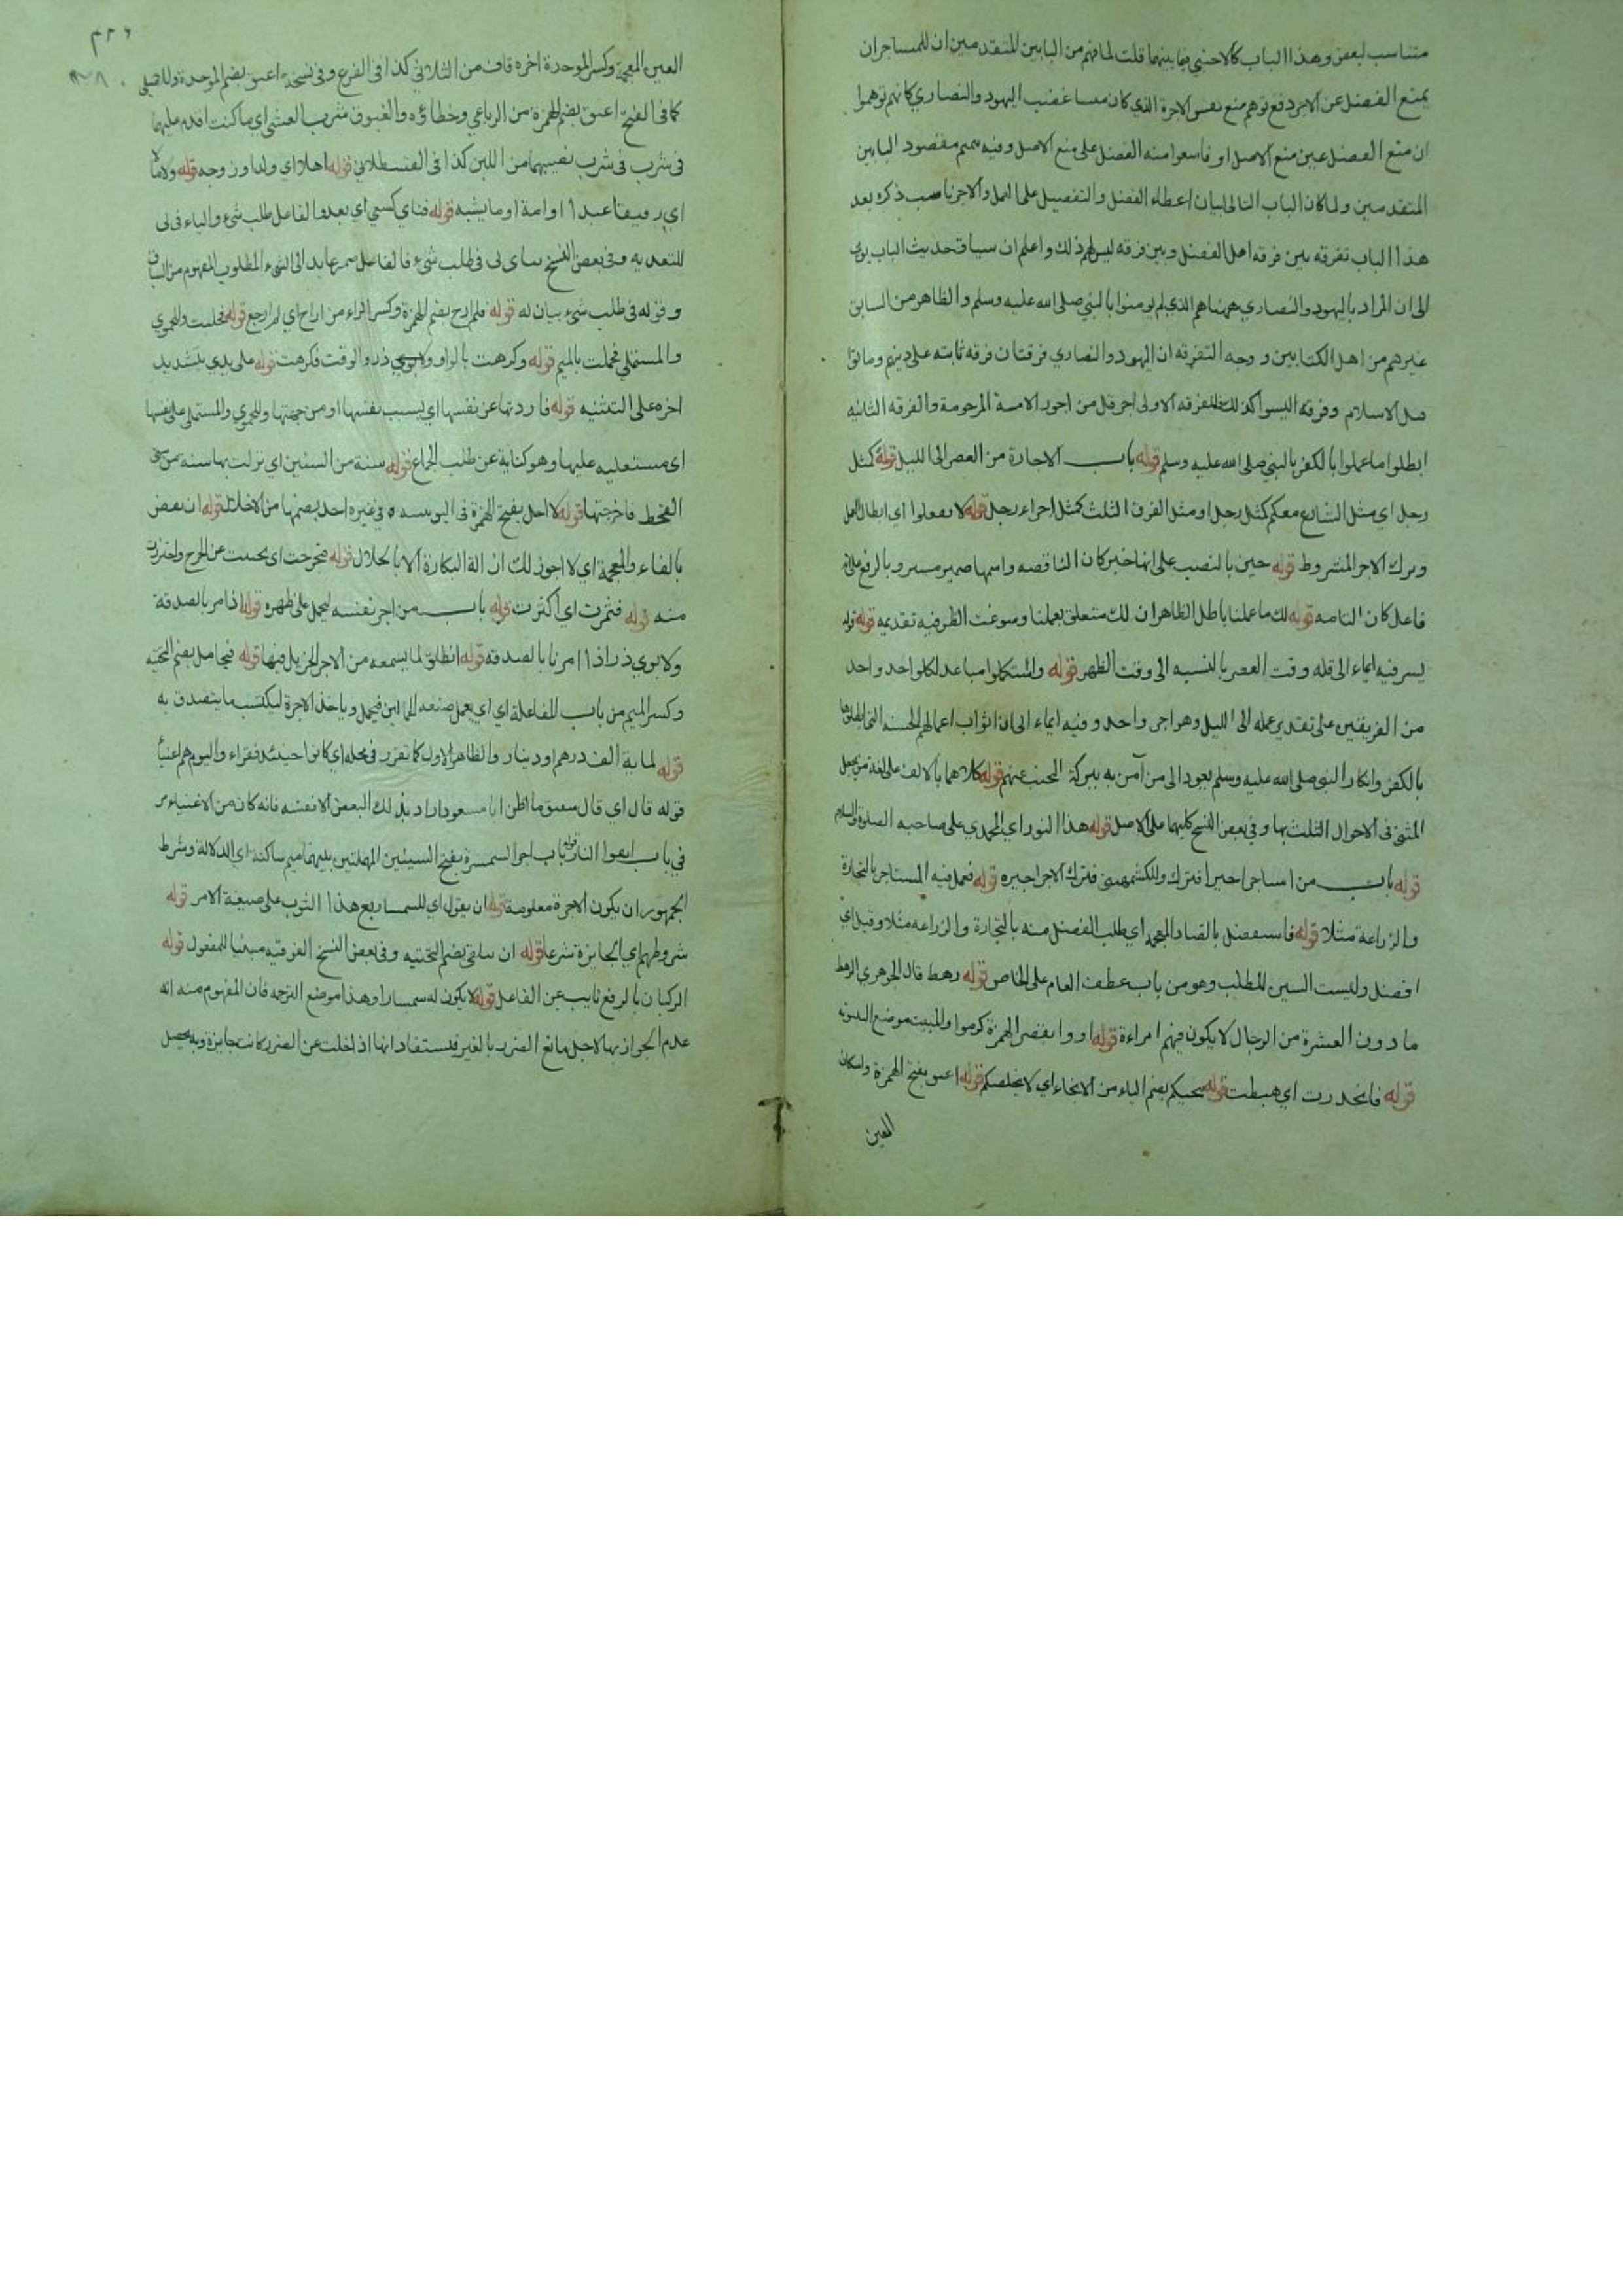 متناسب لبعض وهذا الباب كالاجنبي فيما بينهما قلت لما فهم من البابين المتقدمين ان للمستاجران
يمنع الفضل عن الاجر دفع توهم منع نفس الاجرة الذي كان منسا غضب اليهود والنصاري كانهم توهموا
ان منع الفضل عين منع الاصل او قاسوا منه الفضل على منع الاصل وفيه تتميم مقصود البابين
المتقدمين ولما كان الباب التالي لبيان اعطاء الفضل والتفضيل على العمل والاجر ناسب ذكره بعد
هذا الباب تفرقه بين فرقه اهل الفضل وبين فرقه ليس لهم ذلك واعلم ان سياق حديث الباب يومى
الى ان المراد باليهود والنصاري ههنا هم الذي لم يومنوا بالنبي صلى الله عليه وسلم والظاهر من السابق
غيرهم من اهل الكتابين ووجه التفرقه ان اليهود والنصاري فرقتان فرقه ثابته على دينهم وماتوا
قبل الاسلام وفرقه ليسوا كذلك فللفرقه الاولى اجر قل من اجور الامة المرحومة والفرقه الثانيه
ابطلوا ما عملوا بالكفر بالنبي صلى الله عليه وسلم قوله باب الاجارة من العصر الى الليل قوله كمثل
رجل اي مثل الشارع معكم كمثل رجل او مثل الفرق الثلث كمثل اجراء رجل قوله لا تفعلوا اي ابطال العمل
وترك الاجر المشروط قوله حين بالنصب على انها خبر كان الناقصه واسمها ضمير مستتر وبالرفع على انه
فاعل كان التامه قوله لك ما عملنا باطل الظاهر ان لك متعلق بعملنا وسوغت الظرفيه تقديمه قوله قوله
يسر فيه ايماء الى قله وقت العصر بالنسبه الى وقت الظهر قوله واستكملوا مباعد لكل واحد واحد
من الفريقين على تقدير عمله الى الليل وهو اجر واحد وفيه ايماء الى ان ثواب اعمالهم الحسنه التي ابطلوها
بالكفر وانكار النبي صلى الله عليه وسلم يعود الى من آمن به ببركة عنهم قوله كلاهما بالالف على لغة من يجعل
المثنى في الاحوال الثلث بها وفي بعض النسخ كليهما على الاصل قوله هذا النور اي المحمدي على صاحبه الصلوة والسلام
قوله باب من استاجر اجيرا فترك وللكشميهني فترك الاجر اجيره قوله فعمل فيه المستاجر بالتجارة
والزراعة مثلا قوله فاستفضل بالضاد المعجمه اي طلب الفضل منه بالتجارة والزراعه مثلا وقيل اي
افضل وليست السين للطلب وهو من باب عطف العام على الخاص قوله رهط قال الجوهري الرهط
ما دون العشرة من الرجال لا يكون فيهم امراءة قوله اووا بقصر الهمزة كرموا والمبيت موضع البيتوته
قوله فانحدرت اي هبطت قوله ينجيكم بضم الياء من الانجاء اي لا يخلصكم قوله اغبق بفتح الهمزة واسكان
الغين
العين المعجمة وكسر الموحدة اخره قاف من الثلاثي كذا في الفرع وفي نسخة اغبق بضم الموحدة وللاصيلي
كما في الفتح اغبق بضم الهمزة من الرباعي وخطاؤه والغبوق شرب العشي اي ما كنت اقدم عليهما
في شرب في شرب نصيبهما من اللبن كذا في القسطلاني قوله اهلا اي ولدا وزوجه قوله ولا مالا
اي رقيقا عبدا او امة او ما يشبه قوله فناي كسعي اي بعد والفاعل طلب شيء والباء في بي
للتعديه وفي بعض النسخ ناى لى في طلب شيء فالفاعل ضمير عايد الى الشيء المطلوب المفهوم من السياق
وقوله في طلب شيء بيان له قوله فلم ارح بضم الهمزة وكسر الراء من اراح اي لم ارجع قوله فحلبت وللحموي
والمستملي فحملت بالميم قوله وكرهت بالواو ولابوي ذر والوقت فكرهت قوله على يدي بتشديد
اخره على التثنيه قوله فاردتها عن نفسها اي بسبب نفسها او من جهتها وللحموي والمستملي على نفسها
اى مستعليه عليها وهو كناية عن طلب الجماع قوله سنة من السنين اي نزلت بها سنه من سني
القحط فاحوجتها قوله لا احل بفتح الهمزة في اليونينيه وفي غيره احل بضمها من الاحلال قوله ان تفض
بالفاء والمعجمة اي لا اجوز لك ازالة البكارة الا بالحلال قوله فتحرجت اى تجنبت عن الحرج واحترزت
منه قوله فثمرت اي اكثرت قوله باب من اجر نفسه ليحمل على ظهره قوله اذا امر بالصدقة
ولابوي ذر اذا امرنا بالصدقه قوله انطلق لما يسمعه من الاجر الجزيل فيها قوله فيحامل بضم التحتيه
وكسر الميم من باب المفاعلة اي اي يعمل صنعه الحمالين فيحمل وياخذ الاجرة ليكتسب ما يتصدق به
قوله لماية الف درهم او دينار والظاهر الاول كما تقرر في محله اي كانوا حينئذ فقراء واليوم هم اغنيا
قوله قال اي قال شقيق ما اظن ابا مسعود اراد بذلك البعض الا نفسه فانه كان من الاغنياء مر
في باب اتقوا النار قوله باب اجر السمسرة بفتح السينين المهملتين بينهما ميم ساكنة اي الدلالة وشرط
الجمهور ان يكون الاجرة معلومة قوله ان يقول اي للسمسار بع هذا الثوب على صيغة الامر قوله
شروطهم اي الجايزة شرعا قوله ان يتلقى بضم التحتيه وفي بعض النسخ الفوقيه مبنيا للمفعول قوله
الركبان بالرفع نايب عن الفاعل قوله لا يكون له سمسارا وهذا موضع الترجمه فان المفهوم منه انه
عدم الجواز بها لاجل مانع الضرر بالغير فيستفاد انها اذا خلت عن الضرر كانت جايزة وبه يحصل